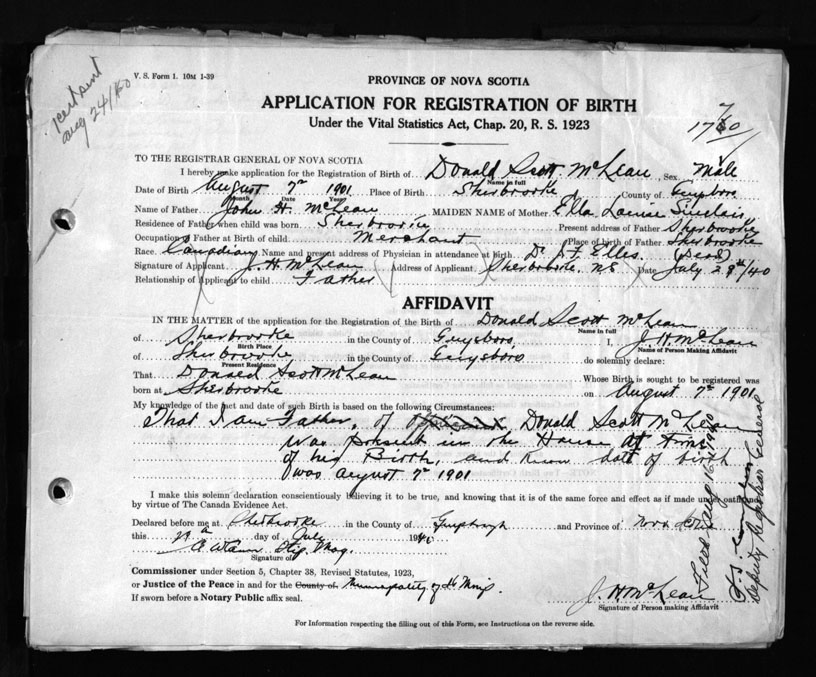 V. S. Form 1. 10M 1-39
cert sent
Aug 24/60
PROVINCE OF NOVA SCOTIA
APPLICATION FOR REGISTRATION OF BIRTH
Under the Vital Statistics Act, Chap. 20, R. S. 1923
TO THE REGISTRAR GENERAL OF NOVA SCOTIA
I hereby make application for the Registration of Birth of Donald Scott McLean, Sex Male
Name in full
Date of Birth August 7th 1901 Place of Birth Sherbrooke County of Guysboro
Month Date Year
Name of Father John H. McLean MAIDEN NAME of Mother Ella Louise Sinclair
Residence of Father when child was born Sherbrooke Present address of Father Sherbrooke
Occupation of Father at Birth of child Merchant Place of birth of Father Sherbrooke
Race Canadian Name and present address of Physician in attendance at Birth Dr. (Dead)
Signature of Applicant J. H McLean Address of Applicant Sherbrooke. N.S Date July 29th/40
Relationship of Applicant to child Father
AFFIDAVIT
IN THE MATTER of the application for the Registration of the Birth of Donald Scott McLean
Name in full
of Sherbrooke in the County of Guysboro I, J. H McLean
Birth Place Name of Person Making Affidavit
of Sherbrooke in the County of Guysboro do solemnly declare:
Present Residence
That Donald Scott McLean Whose Birth is sought to be registered was
born at Sherbrooke on August 7th 1901
My knowledge of the fact and date of such Birth is based on the following Circumstances:
That I am Father, of Donald Scott McLean
was present in the House at time
of his Birth, and know date of birth
was August 7th 1901
I make this solemn declaration conscientiously believing it to be true, and knowing that it is of the same force and effect as if made under oath and
by virtue of The Canada Evidence Act.
Declared before me at Sherbrooke in the County of and Province of Nova Scotia
this day of July 1940
Stip. Mag.
Signature of
Commissioner under Section 5, Chapter 38, Revised Statutes, 1923,
or Justice of the Peace in and for the County of Municipality of St Mary's
If sworn before a Notary Public affix seal.
J. H McLean
Signature of Person making Affidavit
Filed Aug 16 1940
Deputy Registrar General
For Information respecting the filling out of this Form, see Instructions on the reverse side.